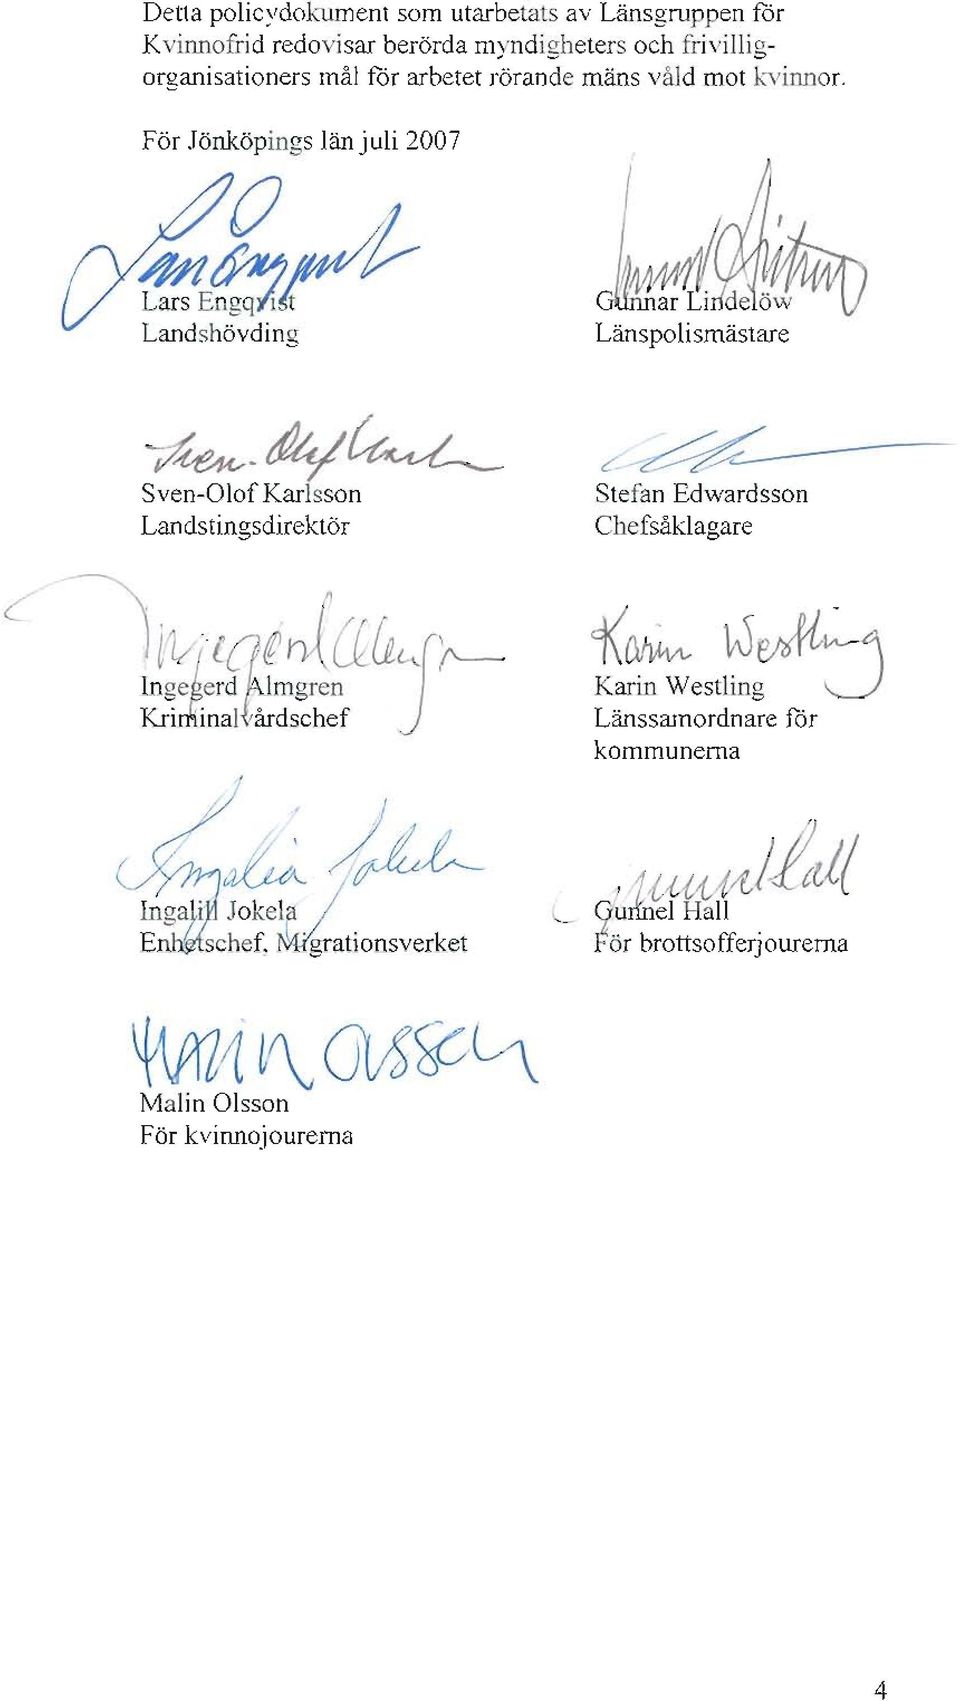 Detta policydokument som utarbetats av Länsgruppen för
Kvinnofrid redovisar berörda myndigheters och frivillig-
organisationers mål för arbetet rörande mäns våld mot kvinnor.
För Jönköpings län juli 2007
Lars Engqvist
Landshövding
Gunnar Lindelöw
Länspolismästare
Sven-Olof Karlsson
Sven-Olof Karlsson
Landstingsdirektör
Stefan Edwardsson
Chefsåklagare
Ingegerd Almgren
Ingegerd Almgren
Kriminalvårdschef
Karin Westling
Karin Westling
Länssamordnare för
kommunerna
Ingalill Jokela
Enhetschef, Migrationsverket
Gunnel Hall
Gunnel Hall
För brottsofferjourerna
Malin Olsson
Malin Olsson
För kvinnojourerna
4